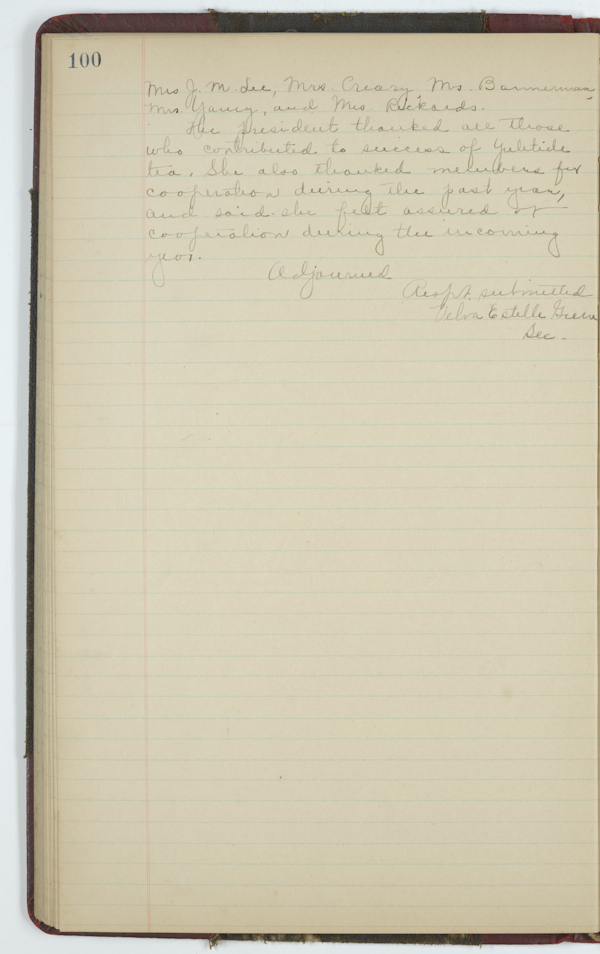 100
Mrs J. M. Lee, Mrs. Creasy, Mrs. Bannerman,
Mrs. Yancy, and Mrs. Rickards.
The president thanked all those
who contributed to success of Yuletide
tea. She also thanked members for
cooperation during the past year,
and said she felt assured of
cooperation during the incoming
year.
Adjourned
Respt. submitted
Velva Estelle Green
Sec.